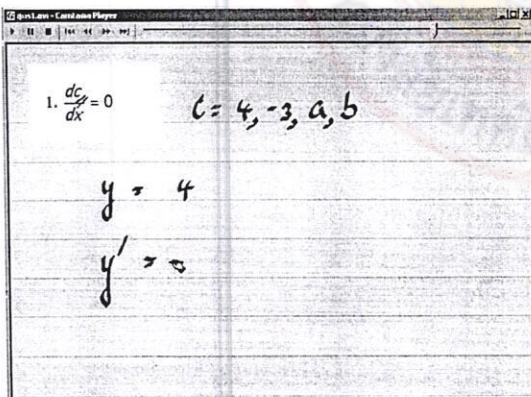 qus1.avi - Camtasia Player
1. dc/dx = 0
C = 4, -3, a, b
y = 4
y' = 0